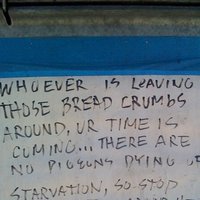 WHOEVER IS LEAVING
THOSE BREAD CRUMBS
AROUND, UR TIME IS
CUMING... THERE ARE
NO PIGEONS DYING OF
STARVATION, SO STOP